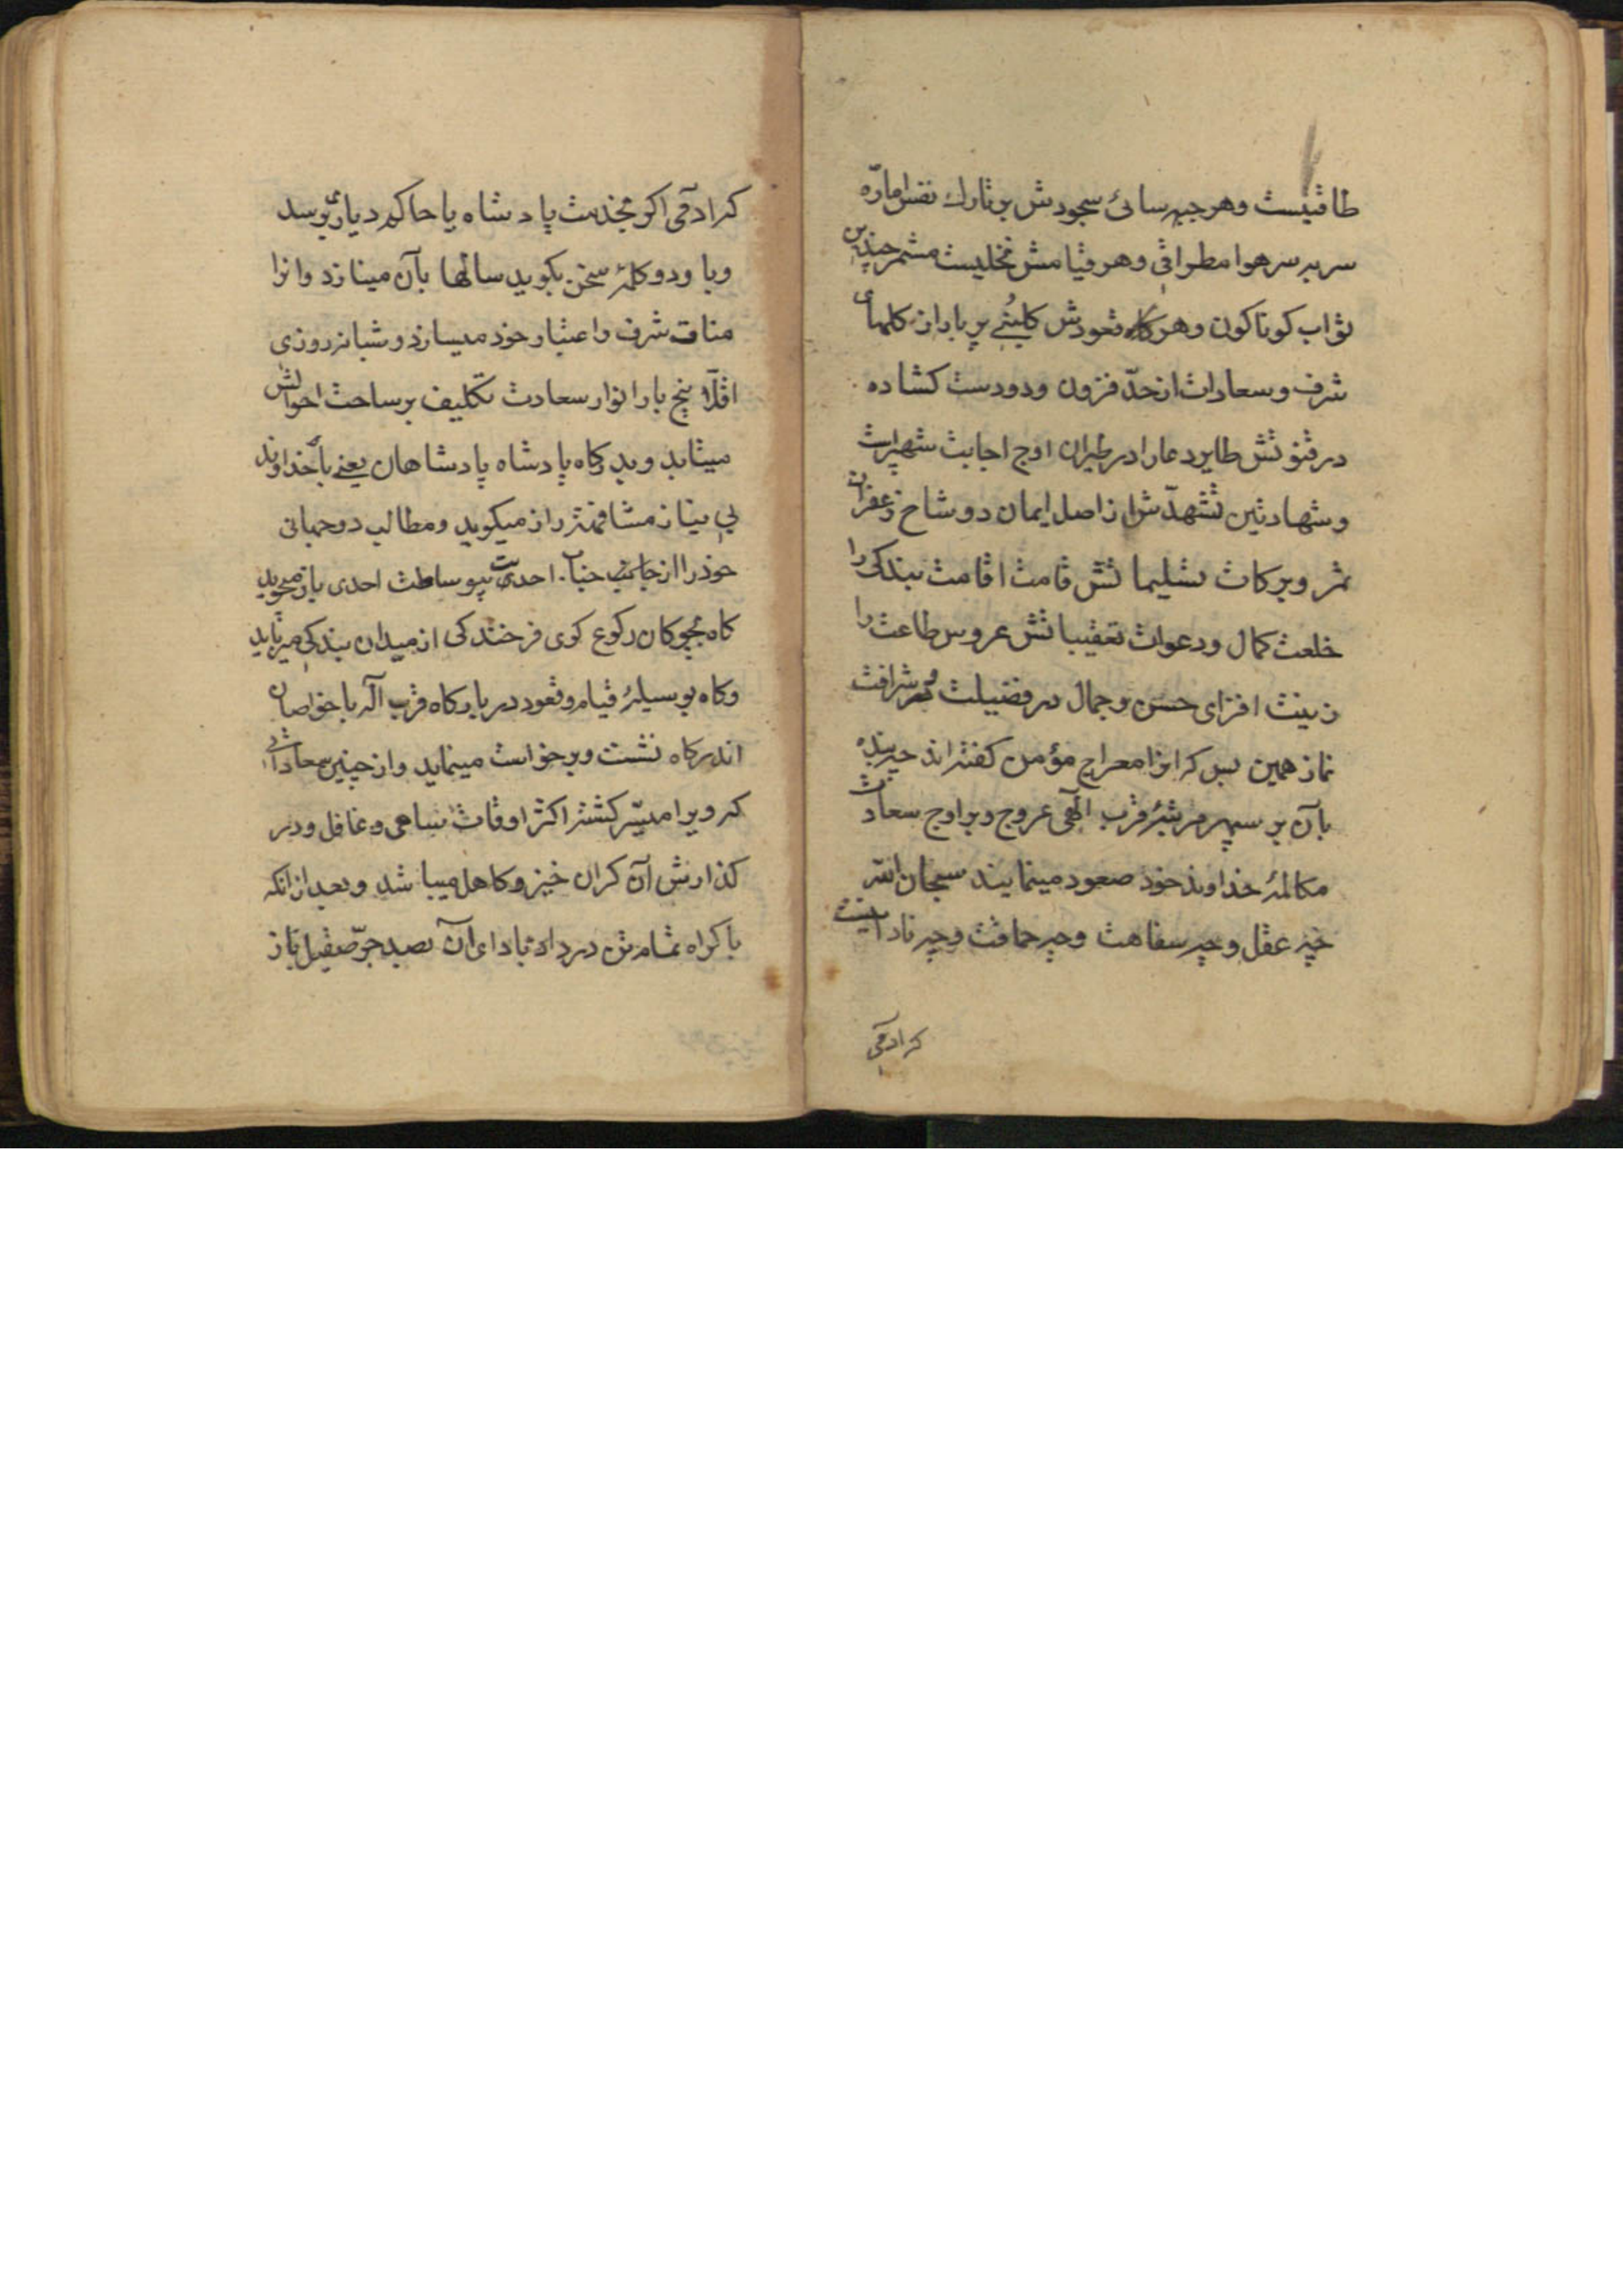 طاقتیست وهر جبهه سائی سجودش بر تارك نفس اماره
سر بر سر هوا مطراقی وهر قیامش نخلیست مثمر چندین
ثواب كوناكون وهر كاه قعودش كلبنی پر بار از كلهای
شرف وسعادات از حدّ فزون ودو دست كشاده
در قنوتش طایر دعا را در طیران اوج اجابت شهپراست
وشهادتین تشهدّش از اصل ایمان دو شاخ زعفران
ثمر وبركات تسلیماتش قامت اقامت بندكی را
خلعت كمال ودعوات تعقیباتش عروس طاعت را
زینت افزای حسن وجمال در فضیلت وشرافت
نماز همین بس كه انرا معراج مؤمن كفته اند چه بنده
بآن بر سپهر مرتبهٔ قرب الهی عروج وبر اوج سعادت
مكالمهٔ خداوند خود صعود مینمایند سبحان الله
چه عقل وچه سفاهت وچه حماقت وچه نادانیست
كه ادمی
كه ادمی اكر بخدمت پادشاه یا حاكم دیاری برسد
وبا و دو كلمهٔ سخن بكوید سالها بآن مینازد وانرا
مناط شرف واعتبار خود میسازد وشبانه روزی
اقلّاً پنج بار انوار سعادت تكلیف بر ساحت احوالش
میتابد وبدركاه پادشاه پادشاهان یعنی با خداوند
بی نیاز مشافهة راز میكوید ومطالب دو جهانی
خود را از جانب جناب احدیت بیوساطت احدی باز میجوید
كاه بچوكان ركوع كوی فرخندكی از میدان بندكی میرباید
وكاه بوسیلهٔ قیام وقعود در باركاه قرب آله با خواصان
اندركاه نشست وبرخواست مینماید واز چنین سعاداتی
كه ویرا میسّر كشته اكثر اوقات ساهی وغافل ودر
كذارش آن كران خیز وكاهل میباشد وبعد از انكه
باكراه تمامش در داد باداى آن بصد جرّ ثقیل باز